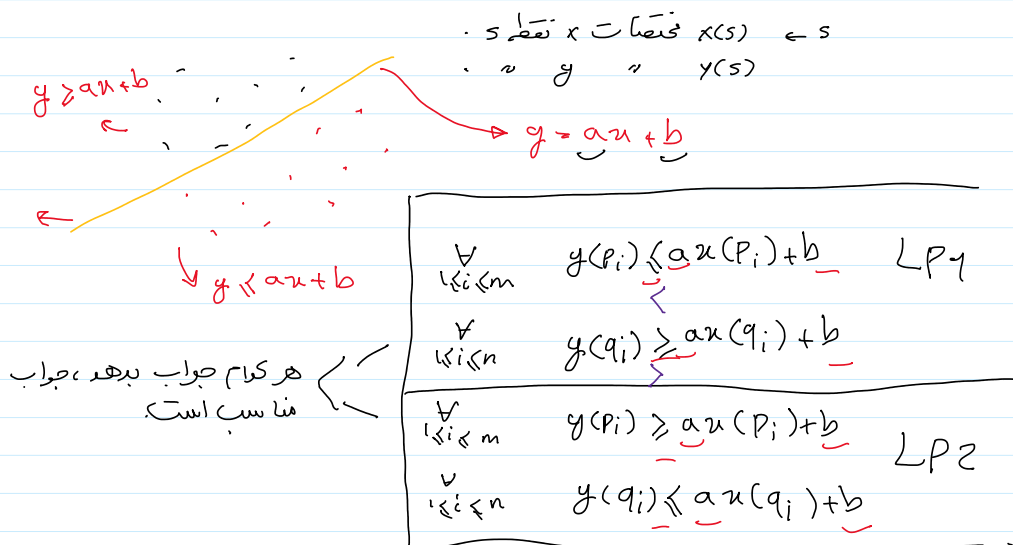 s ← x(s) مختصات x نقطه s .
y(s) " y " .
y ≥ ax + b
y = ax + b
y ≤ ax + b
LP1
∀ 1≤i≤m y(pᵢ) ≤ ax(pᵢ) + b
<
∀ 1≤i≤n y(qᵢ) ≥ ax(qᵢ) + b
>
هر کدام جواب بدهد، جواب
مناسب است.
∀ 1≤i≤m y(pᵢ) ≥ ax(pᵢ) + b
LP2
∀ 1≤i≤n y(qᵢ) ≤ ax(qᵢ) + b